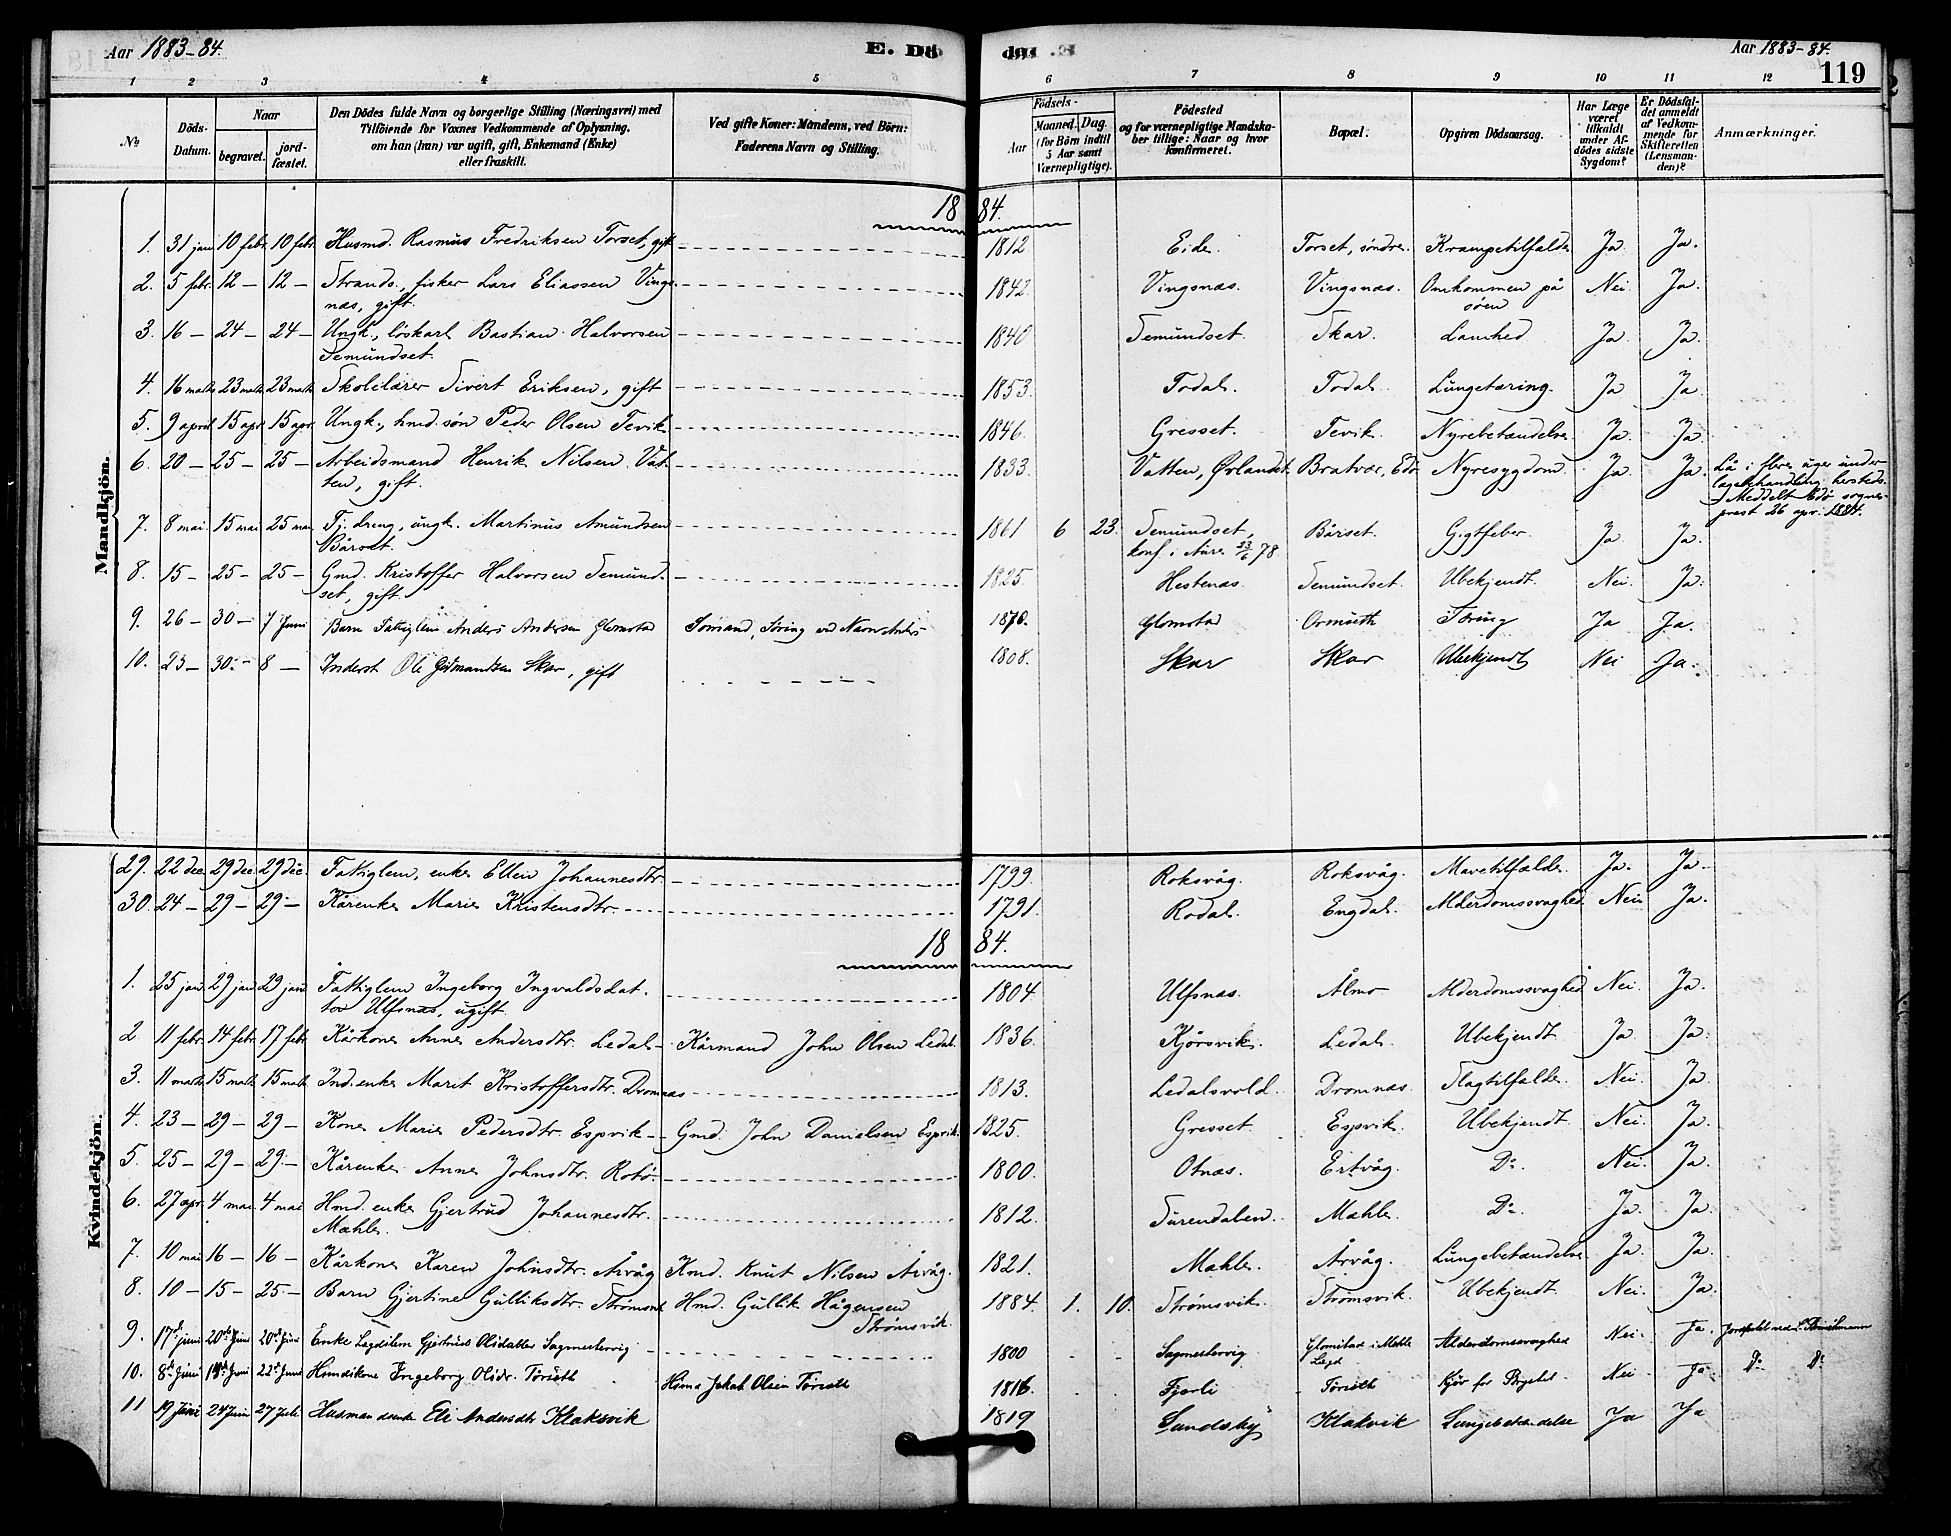 Aar 1883-84. E. Dö de. Aar 1883-84.
119
1 2 3 4 5 6 7 8 9 10 11 12
No
Döds-Datum.
Naar
begravet. jordfæstet.
Den Dödes fulde Navn og borgerlige Stilling (Næringsvei) med
Tilföiende for Voxnes Vedkommende af Oplysning,
om han (hun) var ugift, gift, Enkemand (Enke)
eller fraskilt.
Ved gifte Koner: Mandens, ved Börn:
Faderens Navn og Stilling.
Födsels-
Aar Maaned. Dag.
(for Börn indtil
5 Aar samt
Værnepligtige).
Födested
og for værnepligtige Mandska-
ber tillige: Naar og hvor
konfirmeret.
Bopæl.
Opgiven Dödsaarsag.
Har Læge
været
tilkaldt
under Af-
dödes sidste
Sygdom?
Er Dödsfal-
det anmeldt
af Vedkom-
mende for
Skifteretten
(Lensman-
den)?
Anmærkninger.
Mandkjön.
18 84.
1. 31 jan 10 febr. 10 febr. Husmd. Rasmus Fredriksen Torset, gift 1812 Eide. Torset, søndre. Krampetilfælde Ja. Ja.
2. 5 febr. 12 — 12 — Strands., fisker Lars Eliassen Vings- 1842. Vingsnæs. Vingsnæs. Omkommen på Nei Ja.
næs, gift. søen
3. 16 — 24 — 24 — Ungk., løskarl Bastian Halvorsen 1840 Semundset. Skar. Lamhed Ja. Ja.
Semundset.
4. 16 marts 23 marts 23 marts Skolelærer Sivert Eriksen, gift 1853. Todal. Todal. Lungetæring. Ja Ja
5. 9 april 15 apr. 15 apr. Ungk., hmd. søn Peder Olsen Tevik 1846. Gresset. Tevik. Nyrebetændelse Ja. Ja.
6. 20 — 25 — 25 — Arbeidsmand Henrik Nilsen Vat- 1833. Vatten, Ørlandet. Bratvær, Edø Nyresygdom. Ja. Ja. Lå i flere uger under
ten, gift. lægebehandling hersteds.
Meddelt Edø sogne-
prest 26 apr. 1884.
7. 8 mai 15 mai 25 mai Tj. dreng, ungk. Martinus Amundsen 1861 6 23. Semundset, Bårset. Gigtfeber. Ja Ja.
Bårset. konf. i Aure 23/6 78
8. 15 — 25 — 25 — Gmd. Kristoffer Halvorsen Semund- 1825. Hestenæs. Semundset. Ubekjendt. Nei. Ja.
set, gift.
9. 26 — 30 — 7 Juni Barn Fattiglem Anders Andersen Glomstad 1876. Glomstad Ormseth Tæring Ja Ja.
10. 23 — 30. — 8 — Inderst Ole Gudmundsen Skar, gift 1808. Skar Skar Ubekjendt Nei Ja.
Kvindekjön.
29. 22 dec. 29 dec. 29 dec. Fattiglem, enke Ellen Johannesdtr. 1799. Roksvåg. Roksvåg. Mavetilfælde. Ja. Ja.
30. 24 — 29 — 29 — Kårenke Marie Kristensdtr. 1791. Rodal. Engdal. Alderdomssvaghed Nei Ja.
18 84.
1. 25 jan 29 jan 29 jan Fattiglem Ingeborg Ingvaldsdat- 1804. Ulfsnæs. Ålmo Alderdomssvaghed Nei. Ja.
ter Ulfsnæs, ugift.
2 11 febr. 14 febr. 17 febr. Kårkone Anne Andersdtr. Ledal Kårmand John Olsen Ledal. 1836. Kjørsvik. Ledal. Ubekjendt Ja Ja.
3. 11 marts 15 marts 15 marts Ind. enke Marit Kristoffersdtr. Dromnæs 1813. Ledalsvold. Dromnæs. Slagtilfælde. Nei. Ja.
4. 23 — 29 — 29 — Kone Marie Pedersdtr Espvik Gmd. John Danielsen Espvik. 1825. Gresset. Espvik. Ubekjendt. Nei. Ja.
5. 25 — 29 — 29 — Kårenke Anne Johnsdtr. Rotø. 1800. Otnæs. Ertvåg. Do. Nei. Ja.
6. 27 apr. 4 mai 4 mai Hmd. enke Gjertrud Johannesdtr. 1812. Surendalen. Mæhle. Do Ja. Ja.
Mæhle.
7. 10 mai 16 — 16 — Kårkone Karen Johnsdtr. Årvåg Kmd. Knut Nilsen Årvåg. 1821. Mæhle. Årvåg. Lungebetændelse Ja. Ja.
8. 10 — 15 — 25 — Barn Gjertine Gulliksdtr. Strømsvik Hmd. Gullik Hågensen 1884. 1. 10. Strømsvik. Strømsvik. Ubekjendt Nei. Ja.
Strømsvik.
9. 17de juni 20de Juni 20de Juni Enke Lægdslem Gjertrud Olsdatter Sagmestervig 1800 Sagmestervig Glomstad i Mæhle Alderdomssvaghed Nei. Ja.
Lægd
10. 8de Juni 22de Juni Husmdskone Ingeborg Olsdr. Törseth Husmd Jakob Olsen Törseth 1816. Fjærli Törseth Nei. Ja Do Do
11 19 Juni 24 Juni 27 Juli Husmandsenke Eli Andersdtr Klaksvik 1819 Sandsby Klakvik Lungebetændelse Ja Ja